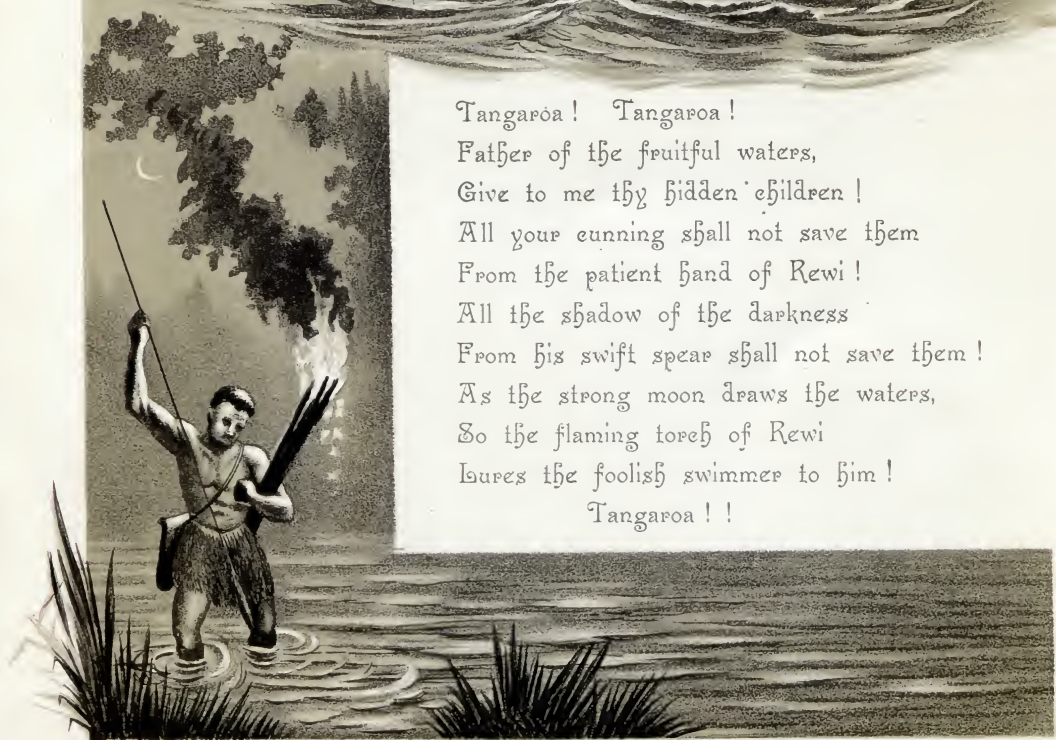 Tangaroa ! Tangaroa !
Father of the fruitful waters,
Give to me thy hidden children !
All your cunning shall not save them
From the patient hand of Rewi !
All the shadow of the darkness
From his swift spear shall not save them !
As the strong moon draws the waters,
So the flaming torch of Rewi
Lures the foolish swimmer to him !
Tangaroa ! !